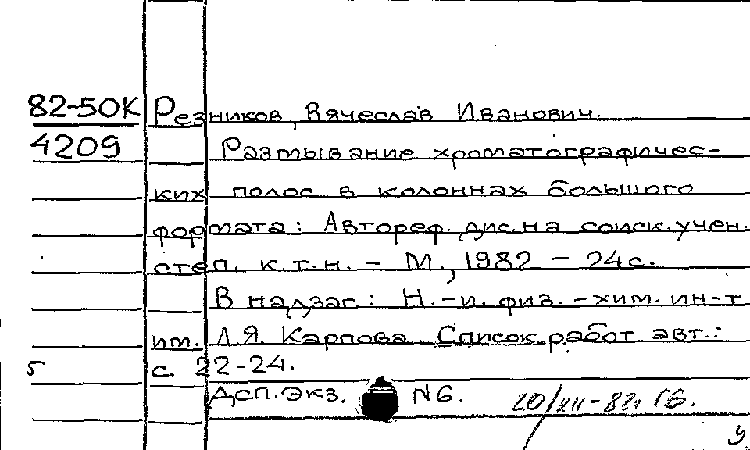 82-50К Резников, Вячеслав Иванович.
4209 Размывание хроматографичес-
ких полос в колоннах большого
формата: Автореф. дис. на соиск. учен.
степ. к.т.н. - М., 1982 - 24с.
В надзаг.: Н.-и. физ.-хим. ин-т
им. Л.Я. Карпова. Список работ авт.:
5 с. 22-24.
Дсп. Экз. №6.